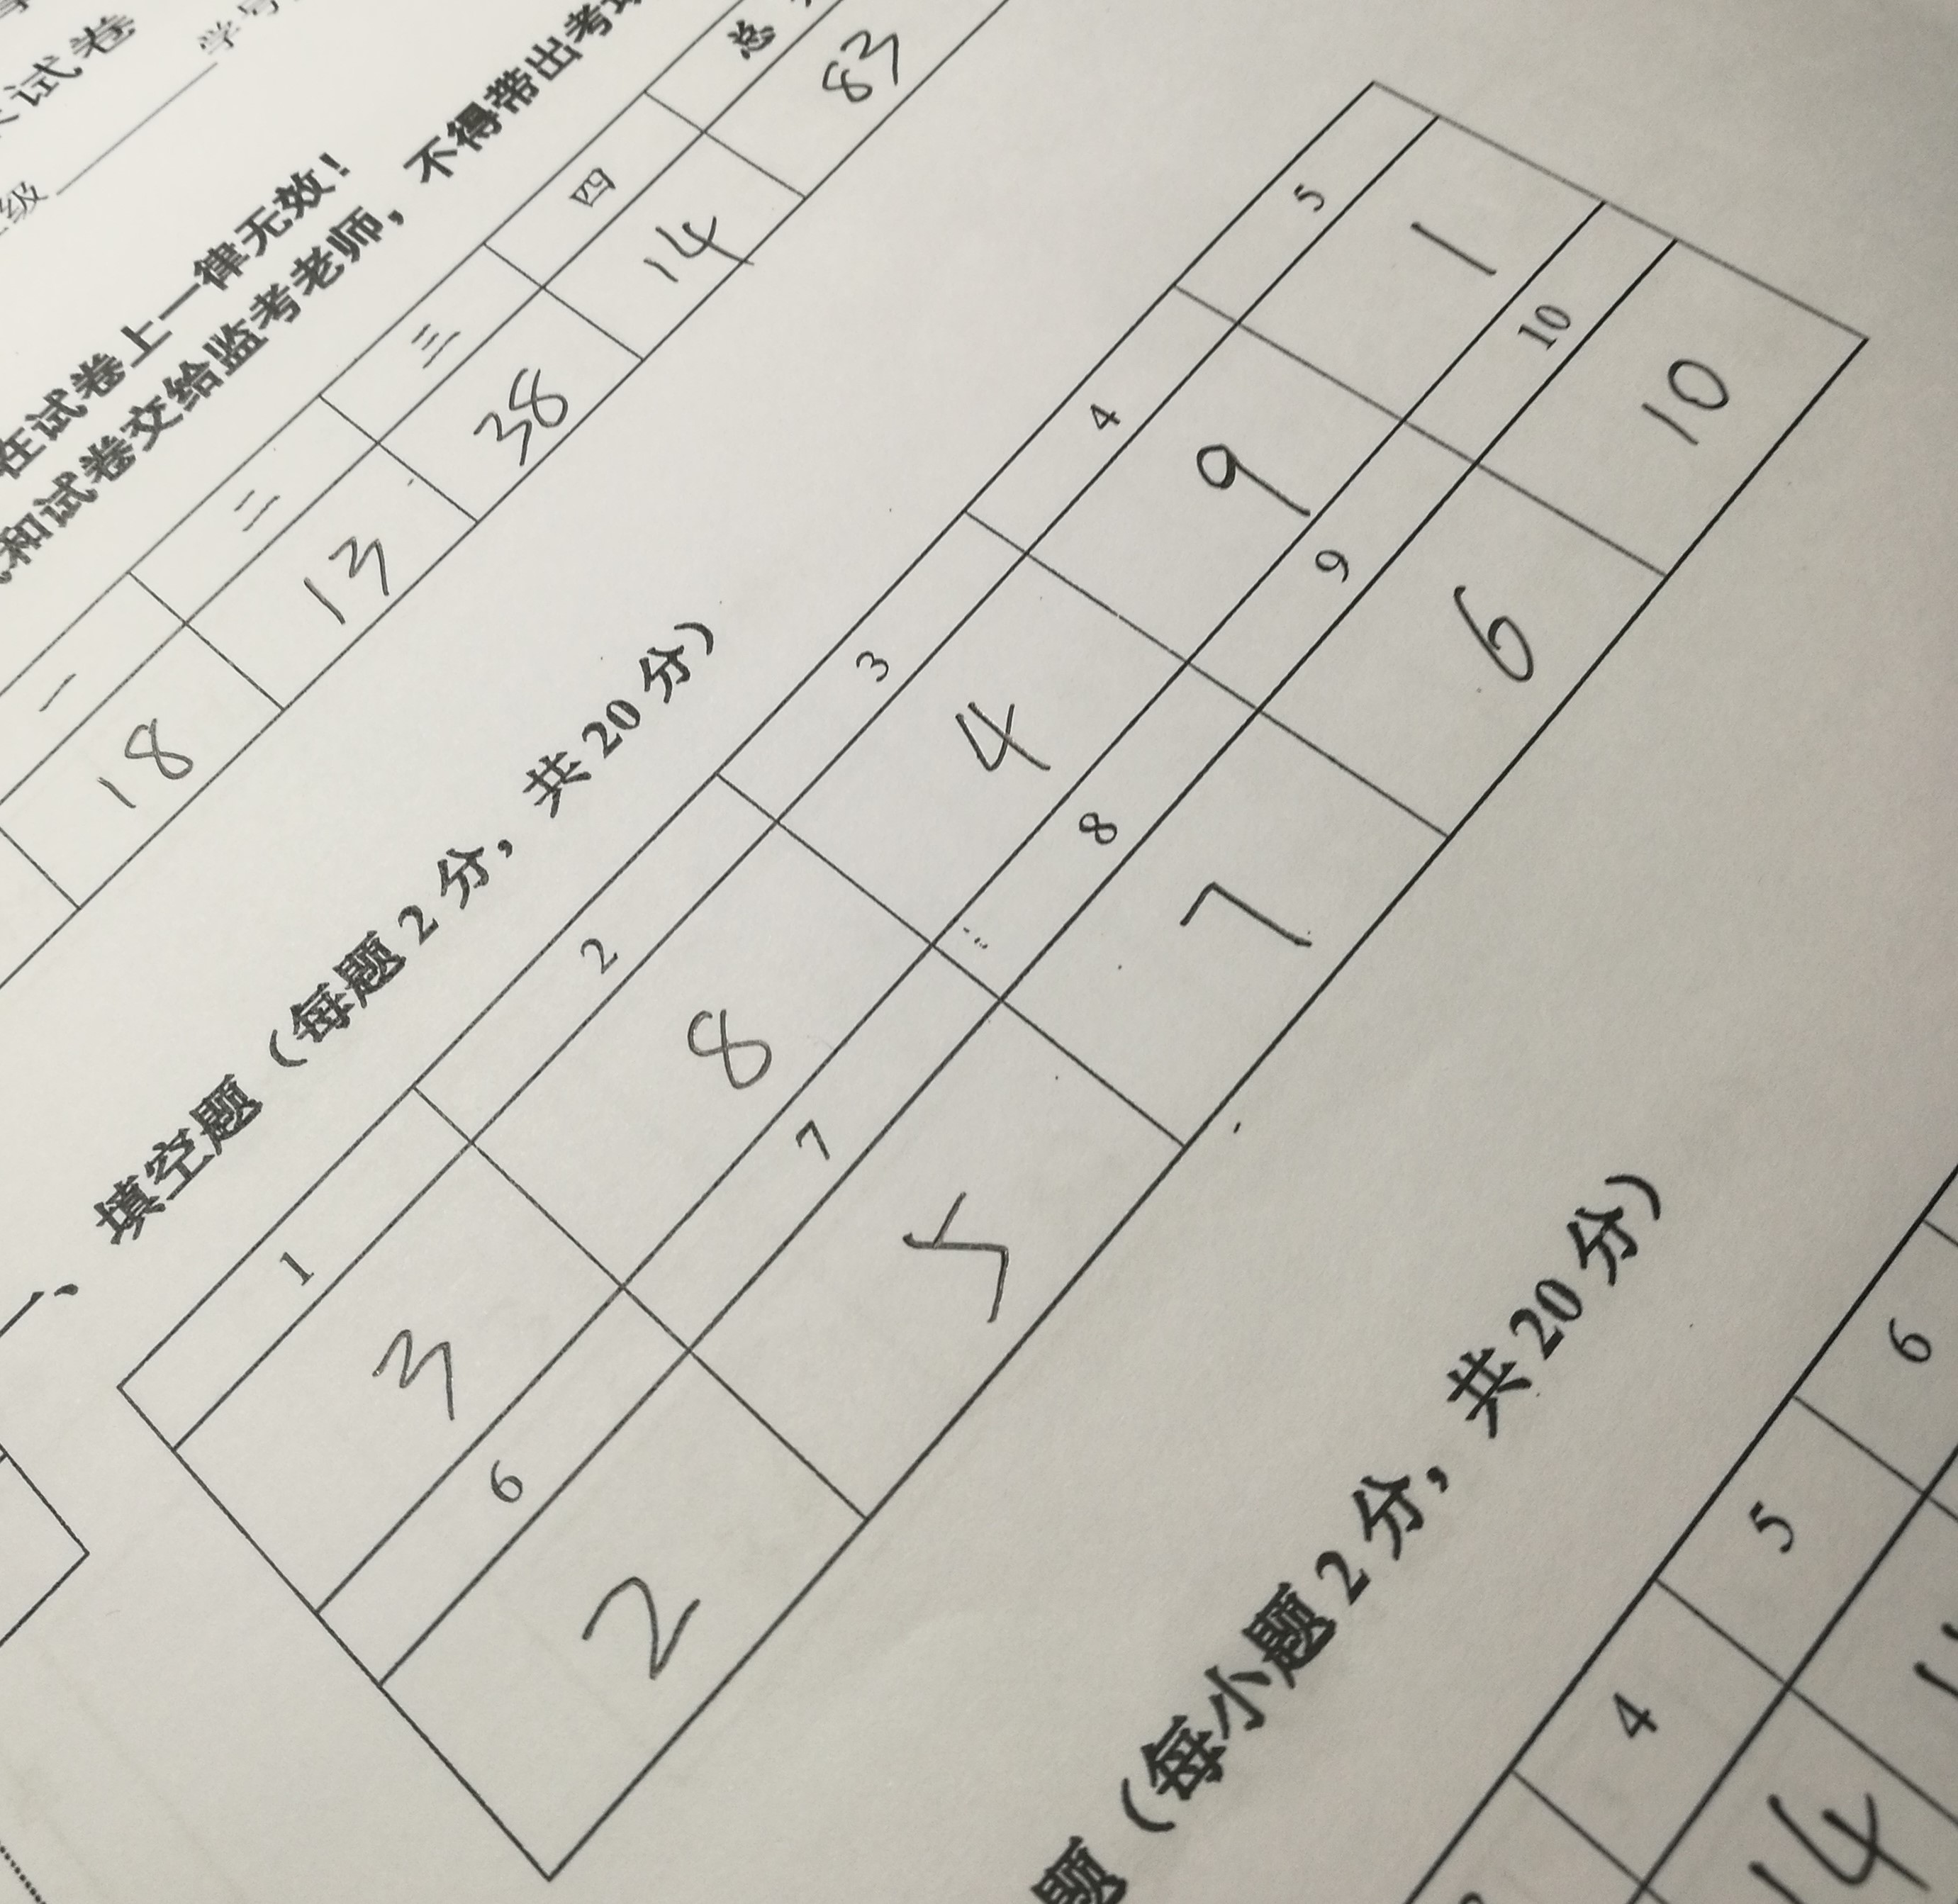 试卷
学号
级
在试卷上一律无效！
和试卷交给监考老师，不得带出考
一 二 三 四 总
18 13 38 14 83
一、填空题（每题 2 分，共 20 分）
1 2 3 4 5
3 8 4 9 1
6 7 8 9 10
2 5 7 6 10
题（每小题 2 分，共 20 分）
4 5 6
14